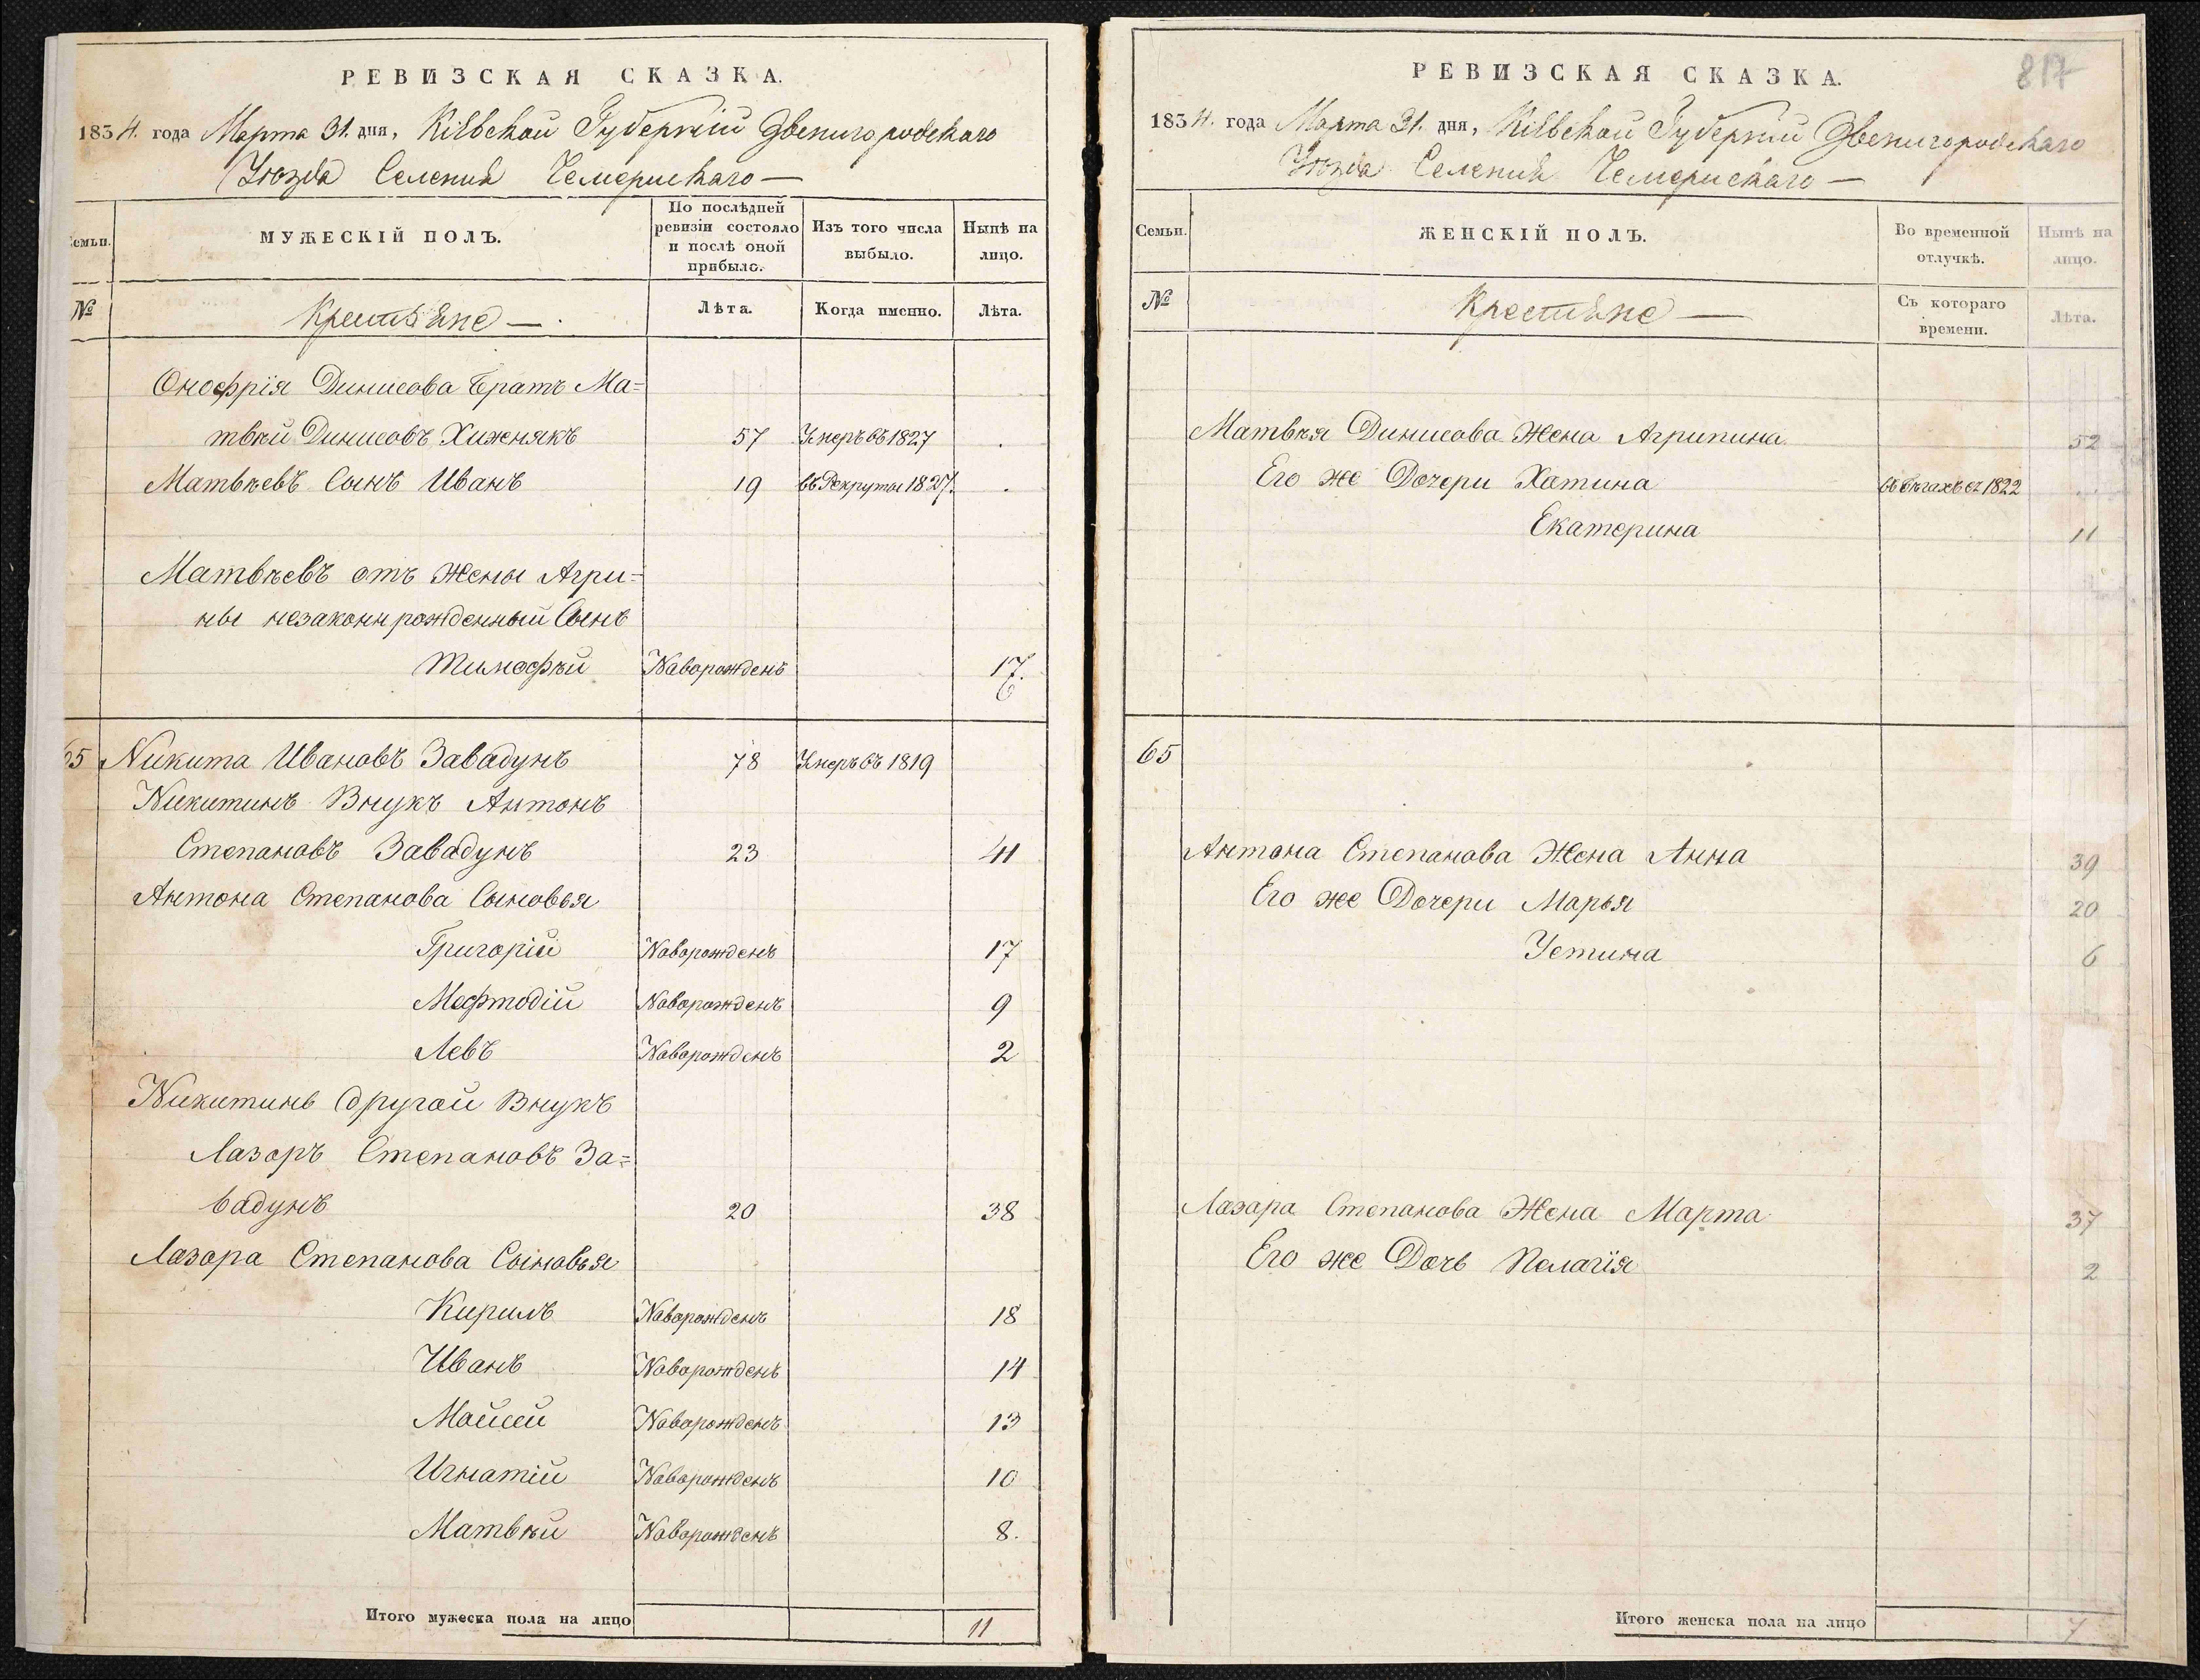 РЕВИЗСКАЯ СКАЗКА.
1834. года Марта 31. дня, Кіевской Губерніи Звенигородскаго
Уюзда Селенія Чемерискаго —
Семьи.
МУЖЕСКІЙ ПОЛЪ.
По послѣдней ревизіи состояло и послѣ оной прибыло.
Изъ того числа выбыло.
Нынѣ на лицо.
№
Крестьяне — .
Лѣта.
Когда именно.
Лѣта.
Онофрія Динисова Братъ Ма=
твѣй Динисовъ Хижнякъ 57 Умеръ въ 1827 .
Матвѣевъ Сынъ Иванъ 19 въ Рекруты 1827. .
Матвѣевъ отъ Жены Агри=
ны незаконнрожденный Сынъ
Тимофѣй Новорожденъ 17.
6
65 Никита Ивановъ Завадунъ 78 Умеръ въ 1819
Никитинъ Внукъ Антонъ
Степановъ Завадунъ 23 41
Антона Степанова Сыновья
Григорій Новорожденъ 17
Мефтодій Новорожденъ 9
Левъ Новорожденъ 2
Никитинъ другой Внукъ
Лазоръ Степановъ За=
вадунъ 20 38
Лазора Степанова Сыновья
Кирилъ Новорожденъ 18
Иванъ Новорожденъ 14
Мойсей Новорожденъ 13
Игнатій Новорожденъ 10
Матвѣй Новорожденъ 8.
Итого мужеска пола на лицо 11
817
РЕВИЗСКАЯ СКАЗКА.
1834. года Марта 31. дня, Кіевской Губерніи Звенигородскаго
Уюзда Селенія Чемерискаго —
Семьи.
ЖЕНСКІЙ ПОЛЪ.
Во временной отлучкѣ.
Нынѣ на лицо.
№
Крестьяне —
Съ котораго времени.
Лѣта.
Матвѣя Динисова Жена Агрипина 52
Его же Дочери Хатина въ бѣгахъ съ 1822 ...
Екатерина 11
65
Антона Степанова Жена Анна 39
Его же Дочери Марья 20
Устина 6
Лазара Степанова Жена Марта 37
Его же Дочь Пелагія 2
Итого женска пола на лицо 7